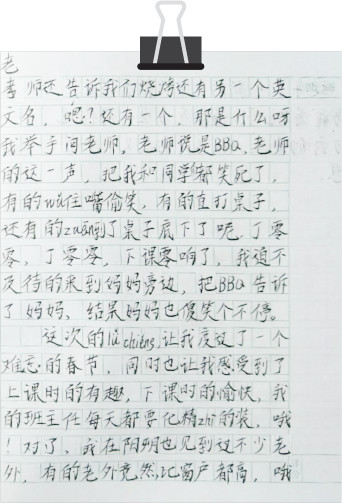 老
李师还告诉我们烧烤还有另一个英
文名，嗯？还有一个，那是什么呀
我举手问老师，老师说是BBQ，老师
的这一声，把我和同学都笑死了，
有的wǔ住嘴偷笑，有的直打桌子，
还有的zuān到了桌子底下了呢。丁零
零，丁零零，下课零响了，我迫不
及待的来到妈妈旁边，把BBQ告诉
了妈妈，结果妈妈也傻笑个不停。
这次的lǚ chéng，让我度过了一个
难忘的春节，同时也让我感受到了
上课时的有趣，下课时的愉快，我
的班主任每天都要化精zhì的装，哦
！对了，我在阳朔也见到过不少老
外，有的老外竟然比窗户都高，哦